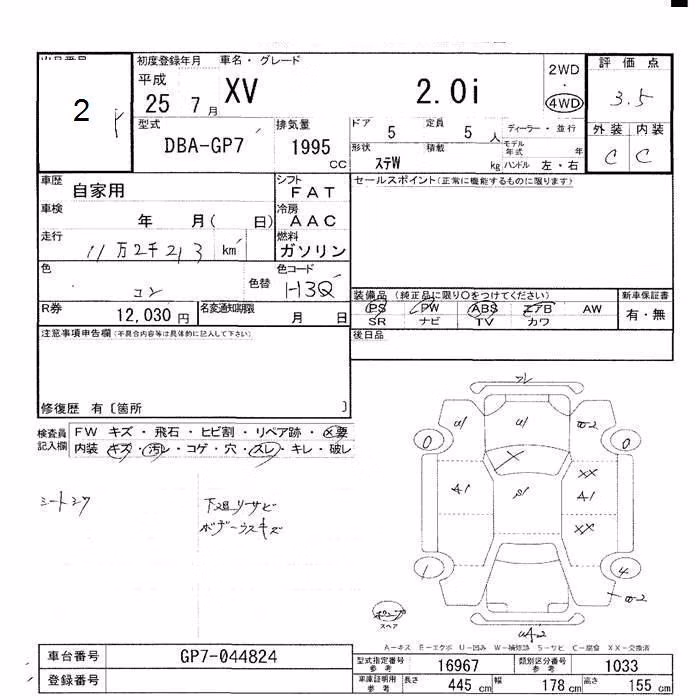 初度登録年月 車名・グレード
平成
25 7月 XV 2.0i
2WD
4WD
評価点
3.5
2
型式 排気量
DBA-GP7 1995 CC
ドア 5 定員 5 人 ディーラー・並行
形状 積載 モデル年式 年
ステW kg ハンドル 左・右
外装 内装
C C
車歴 自家用 シフト FAT
セールスポイント(正常に機能するものに限ります)
車検 年 月( 日) 冷房 AAC
走行 11万2千213 km 燃料 ガソリン
色 コン 色替 色コード H3Q
装備品 (純正品に限り○をつけてください) 新車保証書
PS PW ABS エアB AW 有・無
SR ナビ TV カワ
R券 12,030円 名変通知期限 月 日
注意事項申告欄(不具合内容等は具体的に記入して下さい) 後日品
修復歴 有〔箇所 〕
検査員 FW キズ・飛石・ヒビ割・リペア跡・X要
記入欄 内装 キズ・汚レ・コゲ・穴・スレ・キレ・破レ
シートシワ
下廻りサビ
ボデーウスキズ
フレ
U1 U1 W-2
0 0
X
A1 S1 XX
A1
XX
1 4
W-2
スペア
UA-2
A-キズ E-エクボ U-凹み W-補修跡 S-サビ C-腐食 XX-交換済
車台番号 GP7-044824
登録番号
型式指定番号 参考 16967 類別区分番号 参考 1033
車庫証明用 参考 長さ 445cm 幅 178cm 高さ 155cm